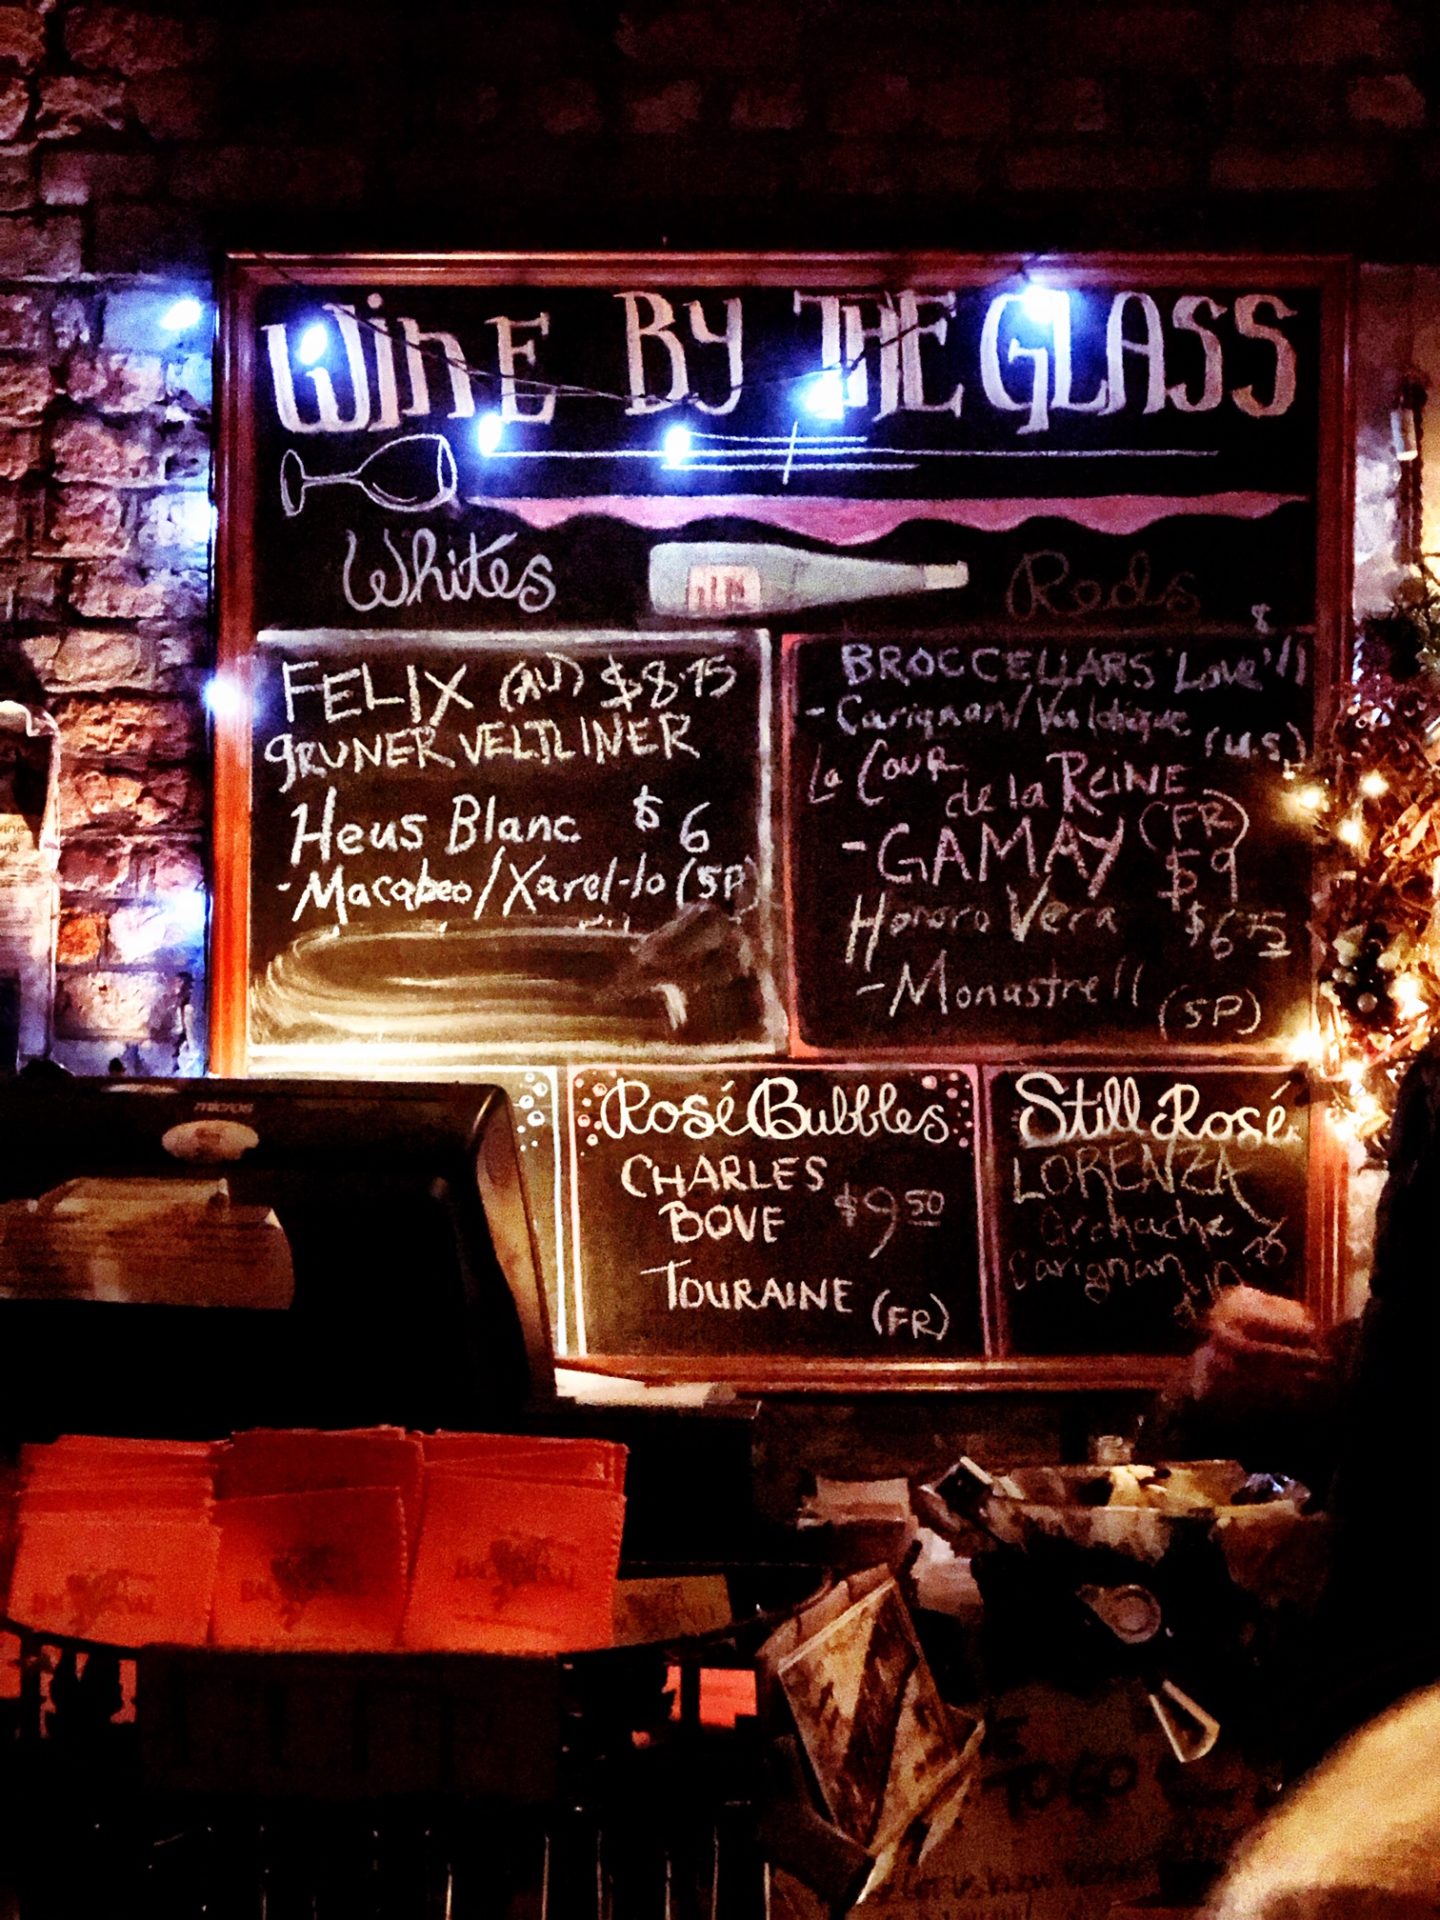 Wine By THE GLASS
Whites
FELIX (AU) $8.75
gRUNER VELTLINER
Heus Blanc $6
-Macabeo/Xarel-lo (SP)
Reds
BROC CELLARS 'Love' $11
- Carignan/Valdigue (U.S)
La COUR
de la REINE
-GAMAY (FR) $9
Honoro Vera $6.75
-Monastrell (SP)
Rosé Bubbles
CHARLES
BOVE $9.50
TOURAINE (FR)
Still Rosé
LORENZA
Grenache
Carignan
micros
TO GO